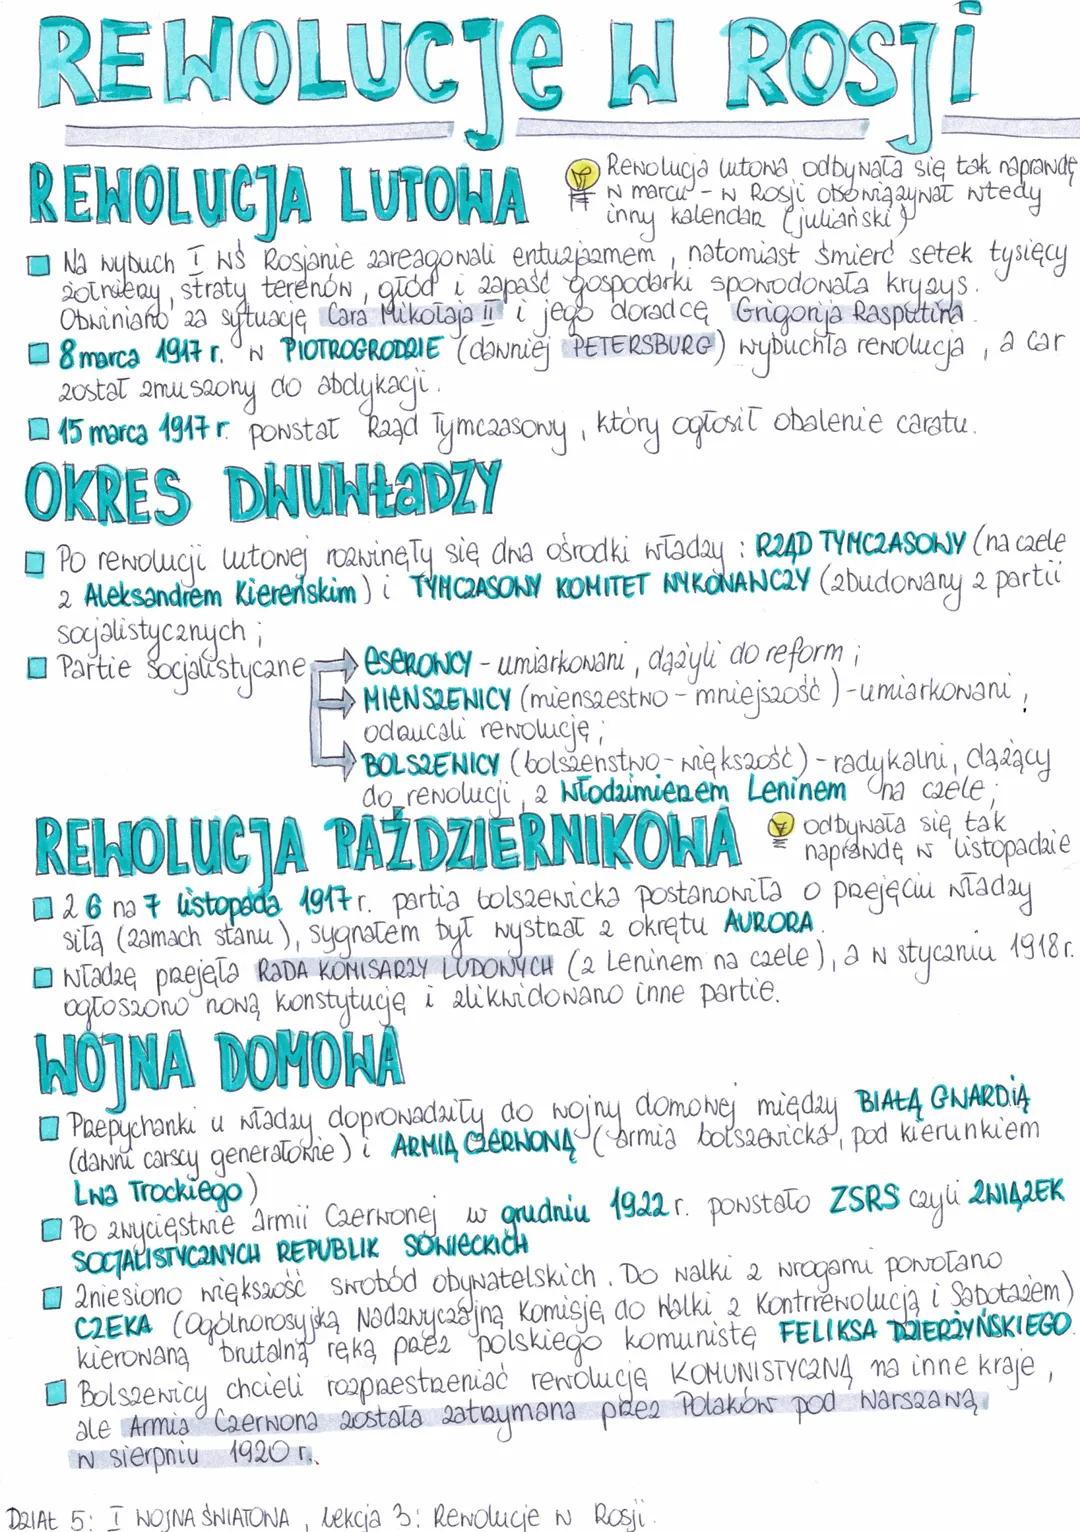 REWOLUCJE W ROSJI
REWOLUCJA LUTOWA
Rewolucja lutowa odbywała się tak naprawdę
w marcu - w Rosji obowiązywał wtedy
inny kalendarz (juliański)
Na wybuch I WŚ Rosjanie zareagowali entuzjazmem, natomiast śmierć setek tysięcy
żołnierzy, straty terenów, głód i zapaść gospodarki spowodowała kryzys.
Obwiniano za sytuację Cara Mikołaja II i jego doradcę Grigorija Rasputina.
8 marca 1917 r. w PIOTROGRODZIE (dawniej PETERSBURG) wybuchła rewolucja, a car
został zmuszony do abdykacji.
15 marca 1917 r. powstał Rząd Tymczasowy, który ogłosił obalenie caratu.
OKRES DWUWŁADZY
Po rewolucji lutowej rozwinęły się dwa ośrodki władzy: RZĄD TYMCZASOWY (na czele
z Aleksandrem Kiereńskim) i TYMCZASOWY KOMITET WYKONAWCZY (zbudowany z partii
socjalistycznych;
Partie socjalistyczne
ESEROWCY - umiarkowani, dążyli do reform;
MIENSZEWICY (mienszestwo - mniejszość) - umiarkowani,
odrzucali rewolucję;
BOLSZEWICY (bolszenstwo - większość) - radykalni, dążący
do rewolucji, z Włodzimierzem Leninem na czele;
REWOLUCJA PAŹDZIERNIKOWA
odbywała się tak
naprawdę w listopadzie
Z 6 na 7 listopada 1917 r. partia bolszewicka postanowiła o przejęciu władzy
siłą (zamach stanu), sygnałem był wystrzał z okrętu AURORA.
Władzę przejęła RADA KOMISARZY LUDOWYCH (z Leninem na czele), a w styczniu 1918 r.
ogłoszono nową konstytucję i zlikwidowano inne partie.
WOJNA DOMOWA
Przepychanki u władzy doprowadziły do wojny domowej między BIAŁĄ GWARDIĄ
(dawni carscy generałowie) i ARMIĄ CZERWONĄ (armia bolszewicka, pod kierunkiem
Lwa Trockiego)
Po zwycięstwie Armii Czerwonej w grudniu 1922 r. powstało ZSRS czyli ZWIĄZEK
SOCJALISTYCZNYCH REPUBLIK SOWIECKICH
Zniesiono większość swobód obywatelskich. Do walki z wrogami powołano
CZEKA (Ogólnorosyjską Nadzwyczajną Komisję do Walki z Kontrrewolucją i Sabotażem)
kierowaną brutalną ręką przez polskiego komunistę FELIKSA DZIERŻYŃSKIEGO.
Bolszewicy chcieli rozprzestrzeniać rewolucję KOMUNISTYCZNĄ na inne kraje,
ale Armia Czerwona została zatrzymana przez Polaków pod Warszawą
w sierpniu 1920 r.
DZIAŁ 5: I WOJNA ŚWIATOWA, lekcja 3: Rewolucje w Rosji.